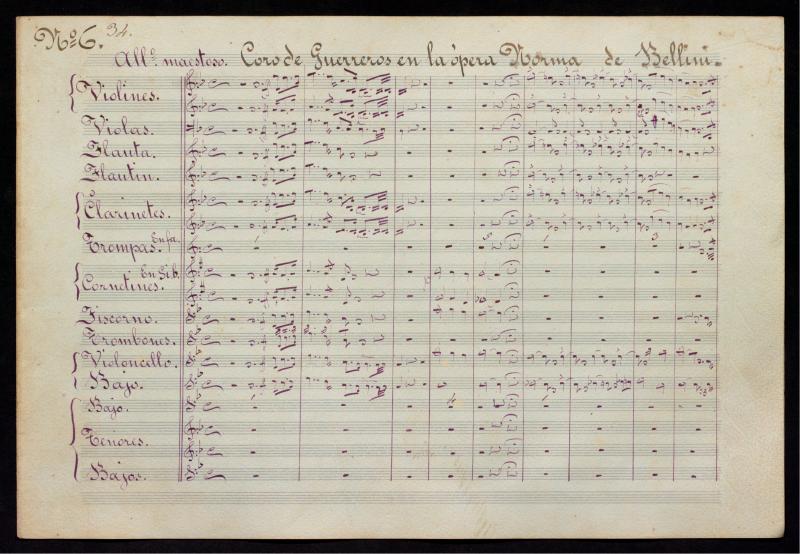 Nº 6. 34.
All.º maestoso. Coro de Guerreros en la ópera Norma de Bellini.
Violines.
Violas.
Flauta.
Flautin.
Clarinetes.
Trompas. En fa.
En Si b.
Cornetines.
Fiscorno.
Trombones.
Violoncello.
Bajo.
Bajo.
Tenores.
Bajos.